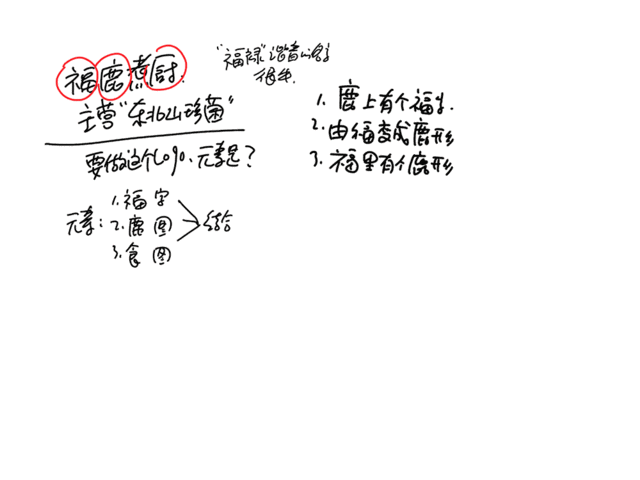 福鹿煮厨:
主营"东北山珍菌"
要做这个logo、元素是?
元素:
1.福 字
2.鹿 图
3.食 图
结合
"福禄"谐音的名字
很多.
1. 鹿上有个福字.
2. 由福变成鹿形
3. 福里有个鹿形